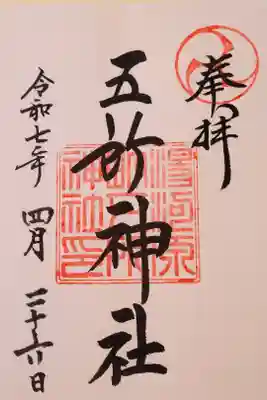 奉拝
五所神社
令和七年 四月 二十六日